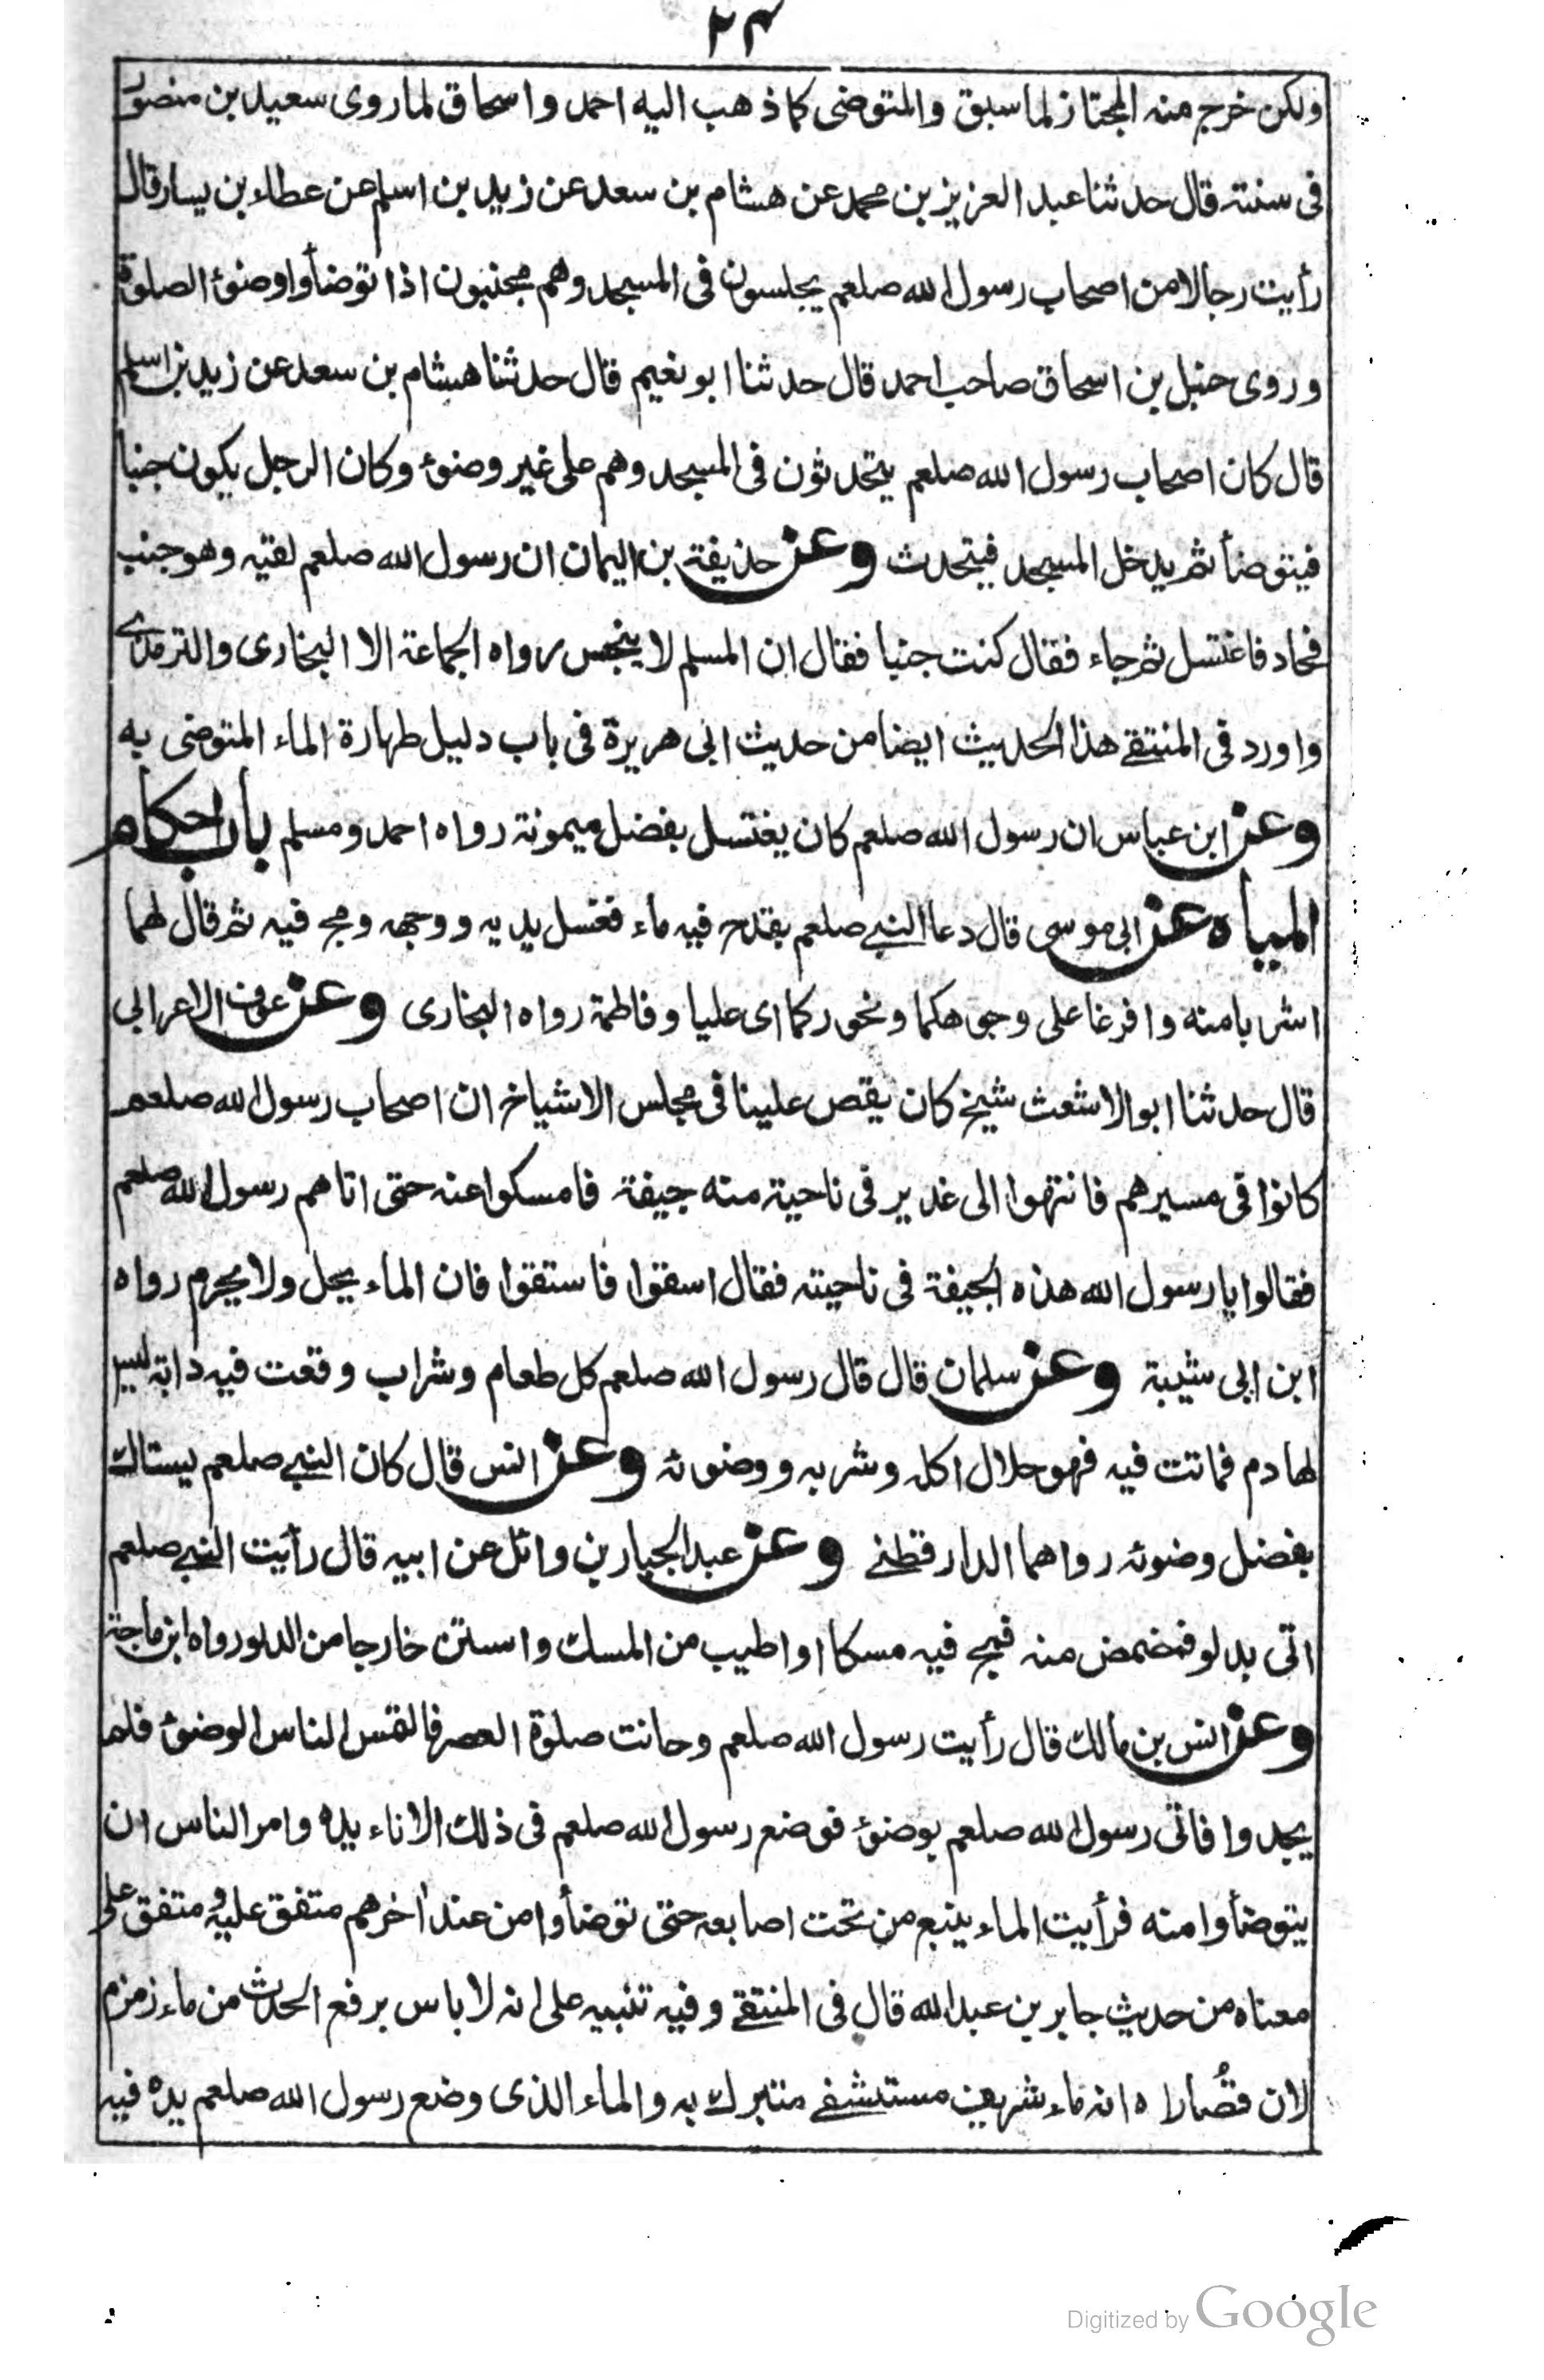 ٢٣
ولكن خرج منه المجتاز لما سبق والمتوضى كما ذهب اليه احمد واسحاق لما روى سعيد بن منصور
فى سننه قال حدثنا عبد العزيز بن محمد عن هشام بن سعد عن زيد بن اسلم عن عطاء بن يسار قال
رأيت رجالا من اصحاب رسول الله صلعم يجلسون فى المسجد وهم مجنبون اذا توضأوا وضوء الصلوة
وروى حنبل بن اسحاق صاحب احمد قال حدثنا ابو نعيم قال حدثنا هشام بن سعد عن زيد بن اسلم
قال كان اصحاب رسول الله صلعم يتحدثون فى المسجد وهم على غير وضوء وكان الرجل يكون جنبا
فيتوضأ ثم يدخل المسجد فيتحدث وعن حذيفة بن اليمان ان رسول الله صلعم لقيه وهو جنب
فحاد فاغتسل ثم جاء فقال كنت جنبا فقال ان المسلم لا ينجس رواه الجماعة الا البخارى والترمذى
واورد فى المنتقے هذا الحديث ايضا من حديث ابى هريرة فى باب دليل طهارة الماء المتوضى به
وعن ابن عباس ان رسول الله صلعم كان يغتسل بفضل ميمونة رواه احمد ومسلم باب احكام
المياه عن ابى موسى قال دعا النبے صلعم بقدح فيه ماء فغسل يديه ووجهه ومج فيه ثم قال لهما
اشربا منه وافرغا على وجوهكما ونحوركما اى عليا وفاطمة رواه البخارى وعن عوف الاعرابى
قال حدثنا ابو الاشعث شيخ كان يقص علينا فى مجلس الاشياخ ان اصحاب رسول الله صلعم
كانوا فى مسيرهم فانتهوا الى غدير فى ناحية منه جيفة فامسكوا عنه حتى اتاهم رسول الله صلعم
فقالوا يا رسول الله هذه الجيفة فى ناحيته فقال اسقوا فاستقوا فان الماء يحل ولا يحرم رواه
ابن ابى شيبة وعن سلمان قال قال رسول الله صلعم كل طعام وشراب وقعت فيه دابة ليس
لها دم فماتت فيه فهو حلال اكله وشربه ووضوئه وعن انس قال كان النبے صلعم يستاك
بفضل وضوئه رواهما الدارقطنے وعن عبد الجبار بن وائل عن ابيه قال رأيت النبے صلعم
اتى بدلو فمضمض منه فمج فيه مسكا او اطيب من المسك واستنن خارجا من الدلو رواه ابن ماجة
وعن انس بن مالك قال رأيت رسول الله صلعم وحانت صلوة العصر فالتمس الناس الوضوء فلم
يجدوا فاتى رسول الله صلعم بوضوء فوضع رسول الله صلعم فى ذلك الاناء يده وامر الناس ان
يتوضأوا منه فرأيت الماء ينبع من تحت اصابعه حتى توضأوا من عند آخرهم متفق عليه ومتفق على
معناه من حديث جابر بن عبد الله قال فى المنتقے وفيه تنبيه على انه لا باس برفع الحدث من ماء زمزم
لان قصاراه انه ماء شريف مستشفے متبرك به والماء الذى وضع رسول الله صلعم يده فيه
Digitized by Google